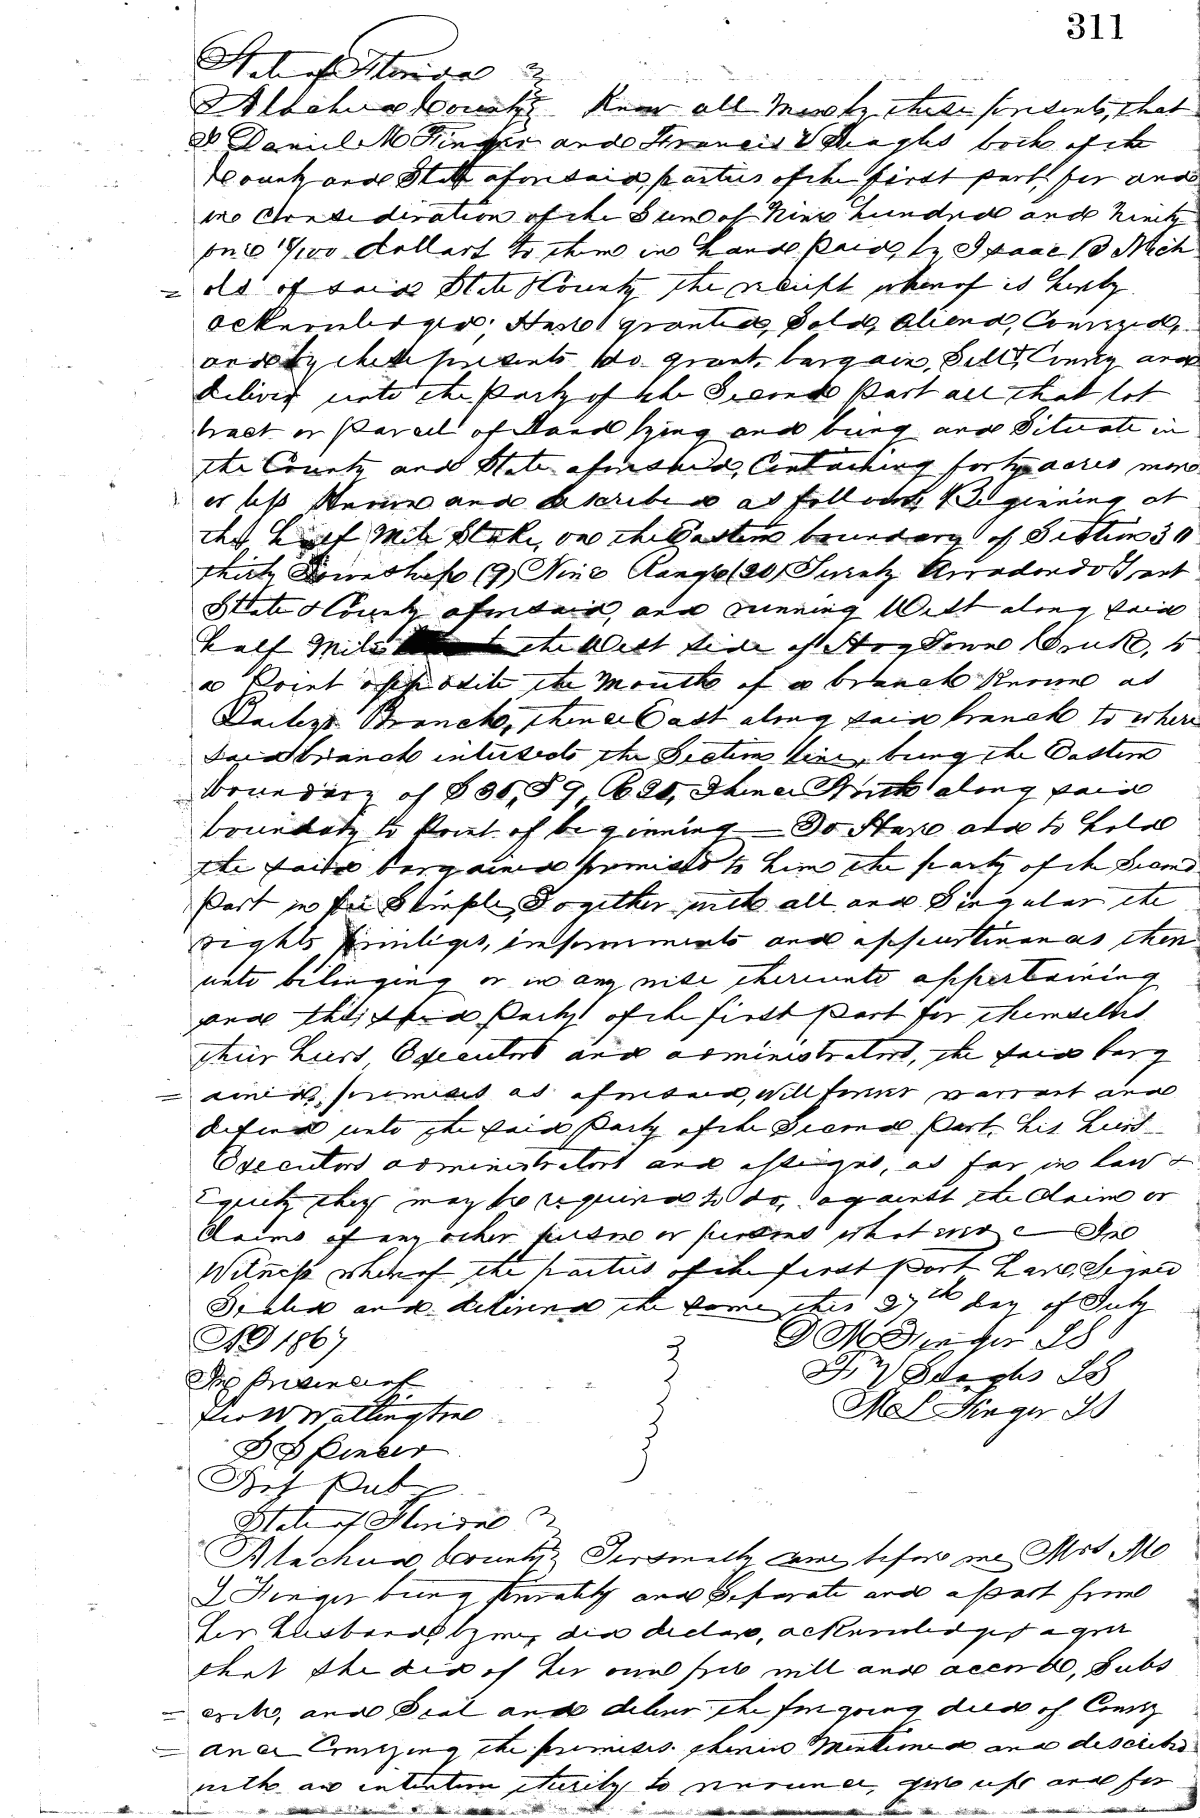 311
State of Florida
Alachua County Know all Men by these presents, that
I Daniel M Finger and Francis V both of the
County and State aforesaid, parties of the first part, for and
in Consideration of the Sum of Nine hundred and Ninety
one /100 dollars to them in hand Paid, by Isaac B Nich
= ols of said State & County the reciept whereof is hereby
acknowledged; Have granted, Sold, aliend, Conveyed,
and by these presents do grant, bargain, Sell, & Convey and
deliver unto the Party of the Second Part all that lot
tract or Parcel of Land lying and being and Situate in
the County and State aforesaid, Containing forty acres more
or less Known and described as follows, Beginning at
the half Mile Stake, on the Eastern boundary of Section 30
thirty Township (9) Nine Range (20) Twenty Arradondo Grant
State & County aforesaid, and running West along said
half Mile the West side of Hog Town Creek, to
a Point opposite the Mouth of a branch Known as
Baileys Branch, thence East along said branch to where
said branch intersects the Section line, being the Eastern
boundary of S 30, T 9, R 20, Thence North along said
boundary to Point of beginning — To Have and to hold
the said bargained premises to him the party of the Second
Part in fee Simple, Together with all and Singular the
rights priviliges, improvments and appurtinances there
unto belonging or in any wise thereunto appertaining
and the said Party of the first Part for themselves
their heirs, Executors and administrators, the said barg
= ained, premises as aforesaid, will forever warrant and
defend unto the said Party of the Second Part, his heirs
Executors administrators and assigns, as far in law &
Equity they may be required to do, against the Claim or
Claims of any other person or persons whatever — In
Witness whereof the parties of the first part have, Signed
Sealed and delivered the same this 27th day of July
AD 1867 D M Finger LS
In presence of F V LS
Geo W Wallington M L Finger LS
S Spencer
Not Pub
State of Florida
Alachua County Personally came before me, Mrs M
L Finger being privately and Separate and apart from
her husband, by me, did declare, acknowledge & agree
that she did of her own free will and accord, Subs
= cribe, and Seal and deliver the foregoing deed of Convey
= ance Conveying the premises therein Mentioned and described
with an intention thereby to renounce, give up and for